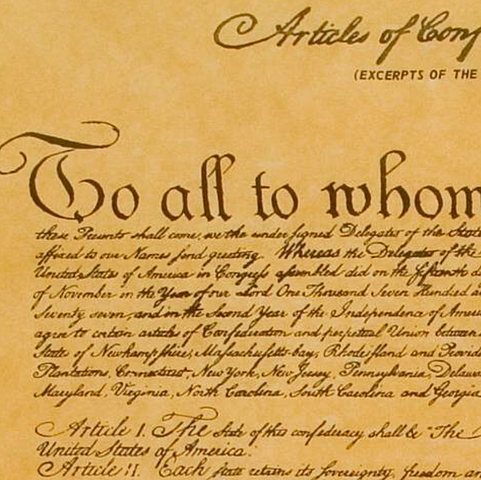 Articles of Conf
(EXCERPTS OF THE
To all to whom
these Presents shall come, we the under signed Delegates of the State
affixed to our Names send greeting. Whereas the Delegates of the
United States of America in Congress assembled did on the fifteenth d
of November in the Year of our Lord One Thousand Seven Hundred a
Seventy seven, and in the Second Year of the Independence of Ameri
agree to certain articles of Confederation and perpetual Union between
States of Newhampshire, Massachusetts-bay, Rhodeisland and Provid
Plantations, Connecticut, New York, New Jersey, Pennsylvania, Delawa
Maryland, Virginia, North Carolina, South Carolina and Georgia
Article I. The stile of this confederacy shall be "The
United States of America."
Article II. Each state retains its sovereignty, freedom an